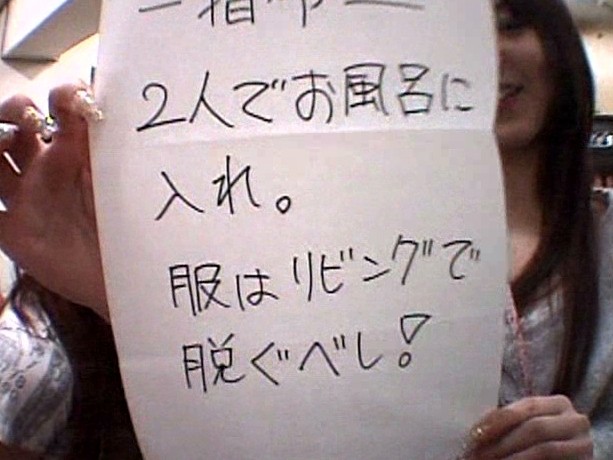 2人でお風呂に
入れ。
服はリビングで
脱ぐべし!